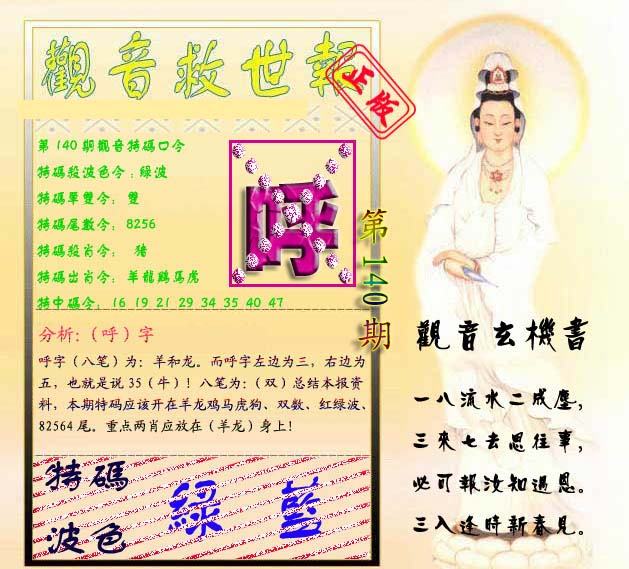 觀音救世報
正版
第140期觀音特碼口令
特碼殺波色令：綠波
特碼單雙令： 雙
特碼尾數令：8256
特碼殺肖令： 猪
特碼出肖令：羊龍鷄馬虎
特中碼令：16 19 21 29 34 35 40 47
呼
第140期
分析：（呼）字
呼字（八笔）为：羊和龙。而呼字左边为三，右边为
五，也就是说 35（牛）！八笔为：（双）总结本报资
料，本期特码应该开在羊龙鸡马虎狗、双数、红绿波、
82564 尾。重点两肖应放在（羊龙）身上！
特碼
波色
綠 藍
觀音玄機書
一八流水二成塵，
三來七去思往事，
必可報汝知遇恩。
三入逢時新春見。